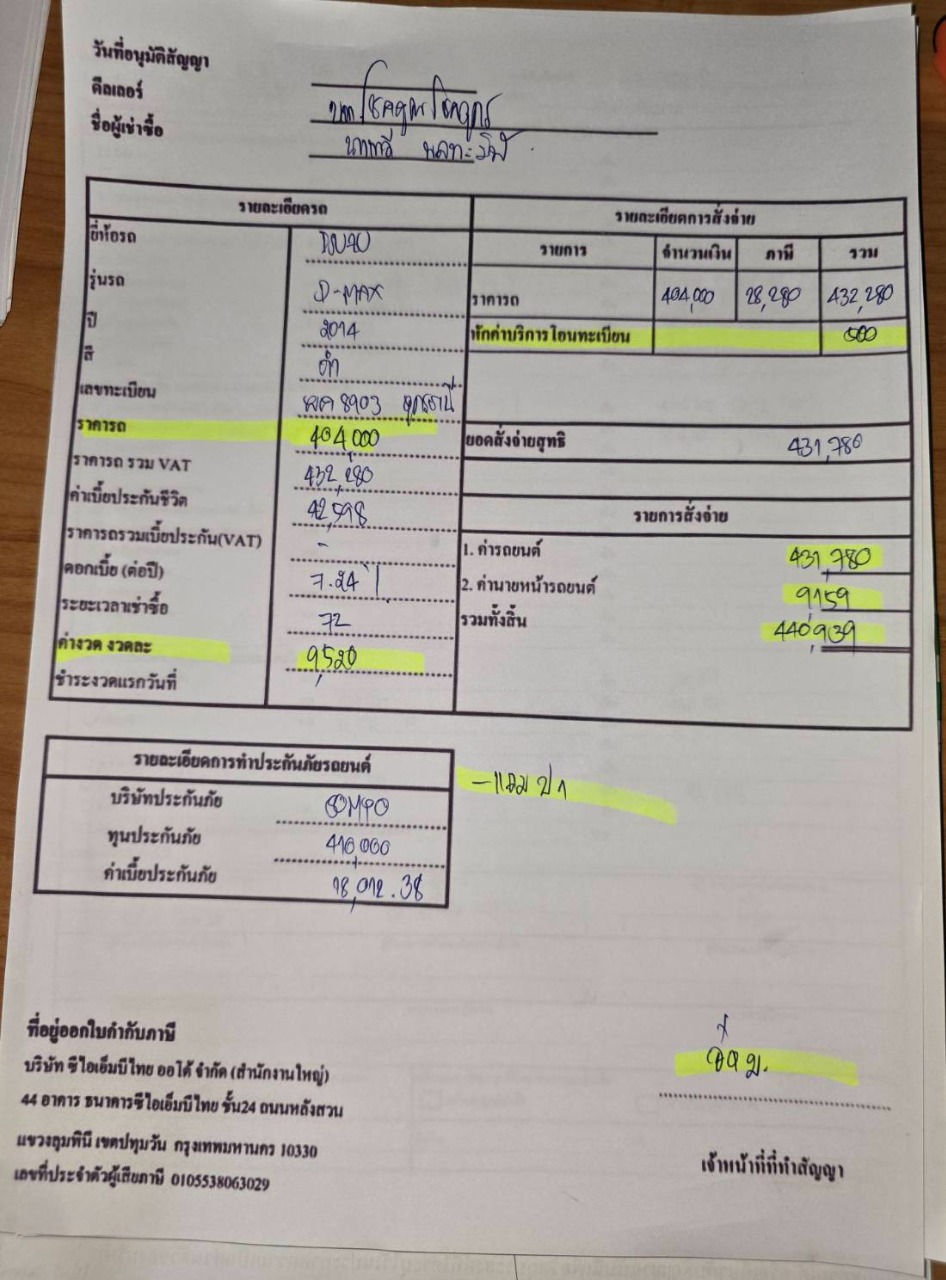 วันที่อนุมัติสัญญา
ดีลเลอร์
ชื่อผู้เช่าซื้อ
รายละเอียดรถ
ยี่ห้อรถ
รุ่นรถ D-MAX
ปี 2014
สี ดำ
เลขทะเบียน 8903
ราคารถ 404,000
ราคารถ รวม VAT 432,280
ค่าเบี้ยประกันชีวิต 42,598
ราคารถรวมเบี้ยประกัน(VAT) -
ดอกเบี้ย (ต่อปี) 7.24
ระยะเวลาเช่าซื้อ 72
ค่างวด งวดละ 9,520
ชำระงวดแรกวันที่
รายละเอียดการสั่งจ่าย
รายการ จำนวนเงิน ภาษี รวม
ราคารถ 404,000 28,280 432,280
หักค่าบริการโอนทะเบียน 500
ยอดสั่งจ่ายสุทธิ 431,780
รายการสั่งจ่าย
1. ค่ารถยนต์ 431,780
2. ค่านายหน้ารถยนต์ 9159
รวมทั้งสิ้น 440,939
รายละเอียดการทำประกันภัยรถยนต์
บริษัทประกันภัย SOMPO
ทุนประกันภัย 410,000
ค่าเบี้ยประกันภัย 18,012.38
- แถม ป1
ที่อยู่ออกใบกำกับภาษี
บริษัท ซีไอเอ็มบีไทย ออโต้ จำกัด (สำนักงานใหญ่)
44 อาคาร ธนาคารซีไอเอ็มบีไทย ชั้น24 ถนนหลังสวน
แขวงลุมพินี เขตปทุมวัน กรุงเทพมหานคร 10330
เลขที่ประจำตัวผู้เสียภาษี 0105538063029
เจ้าหน้าที่ที่ทำสัญญา